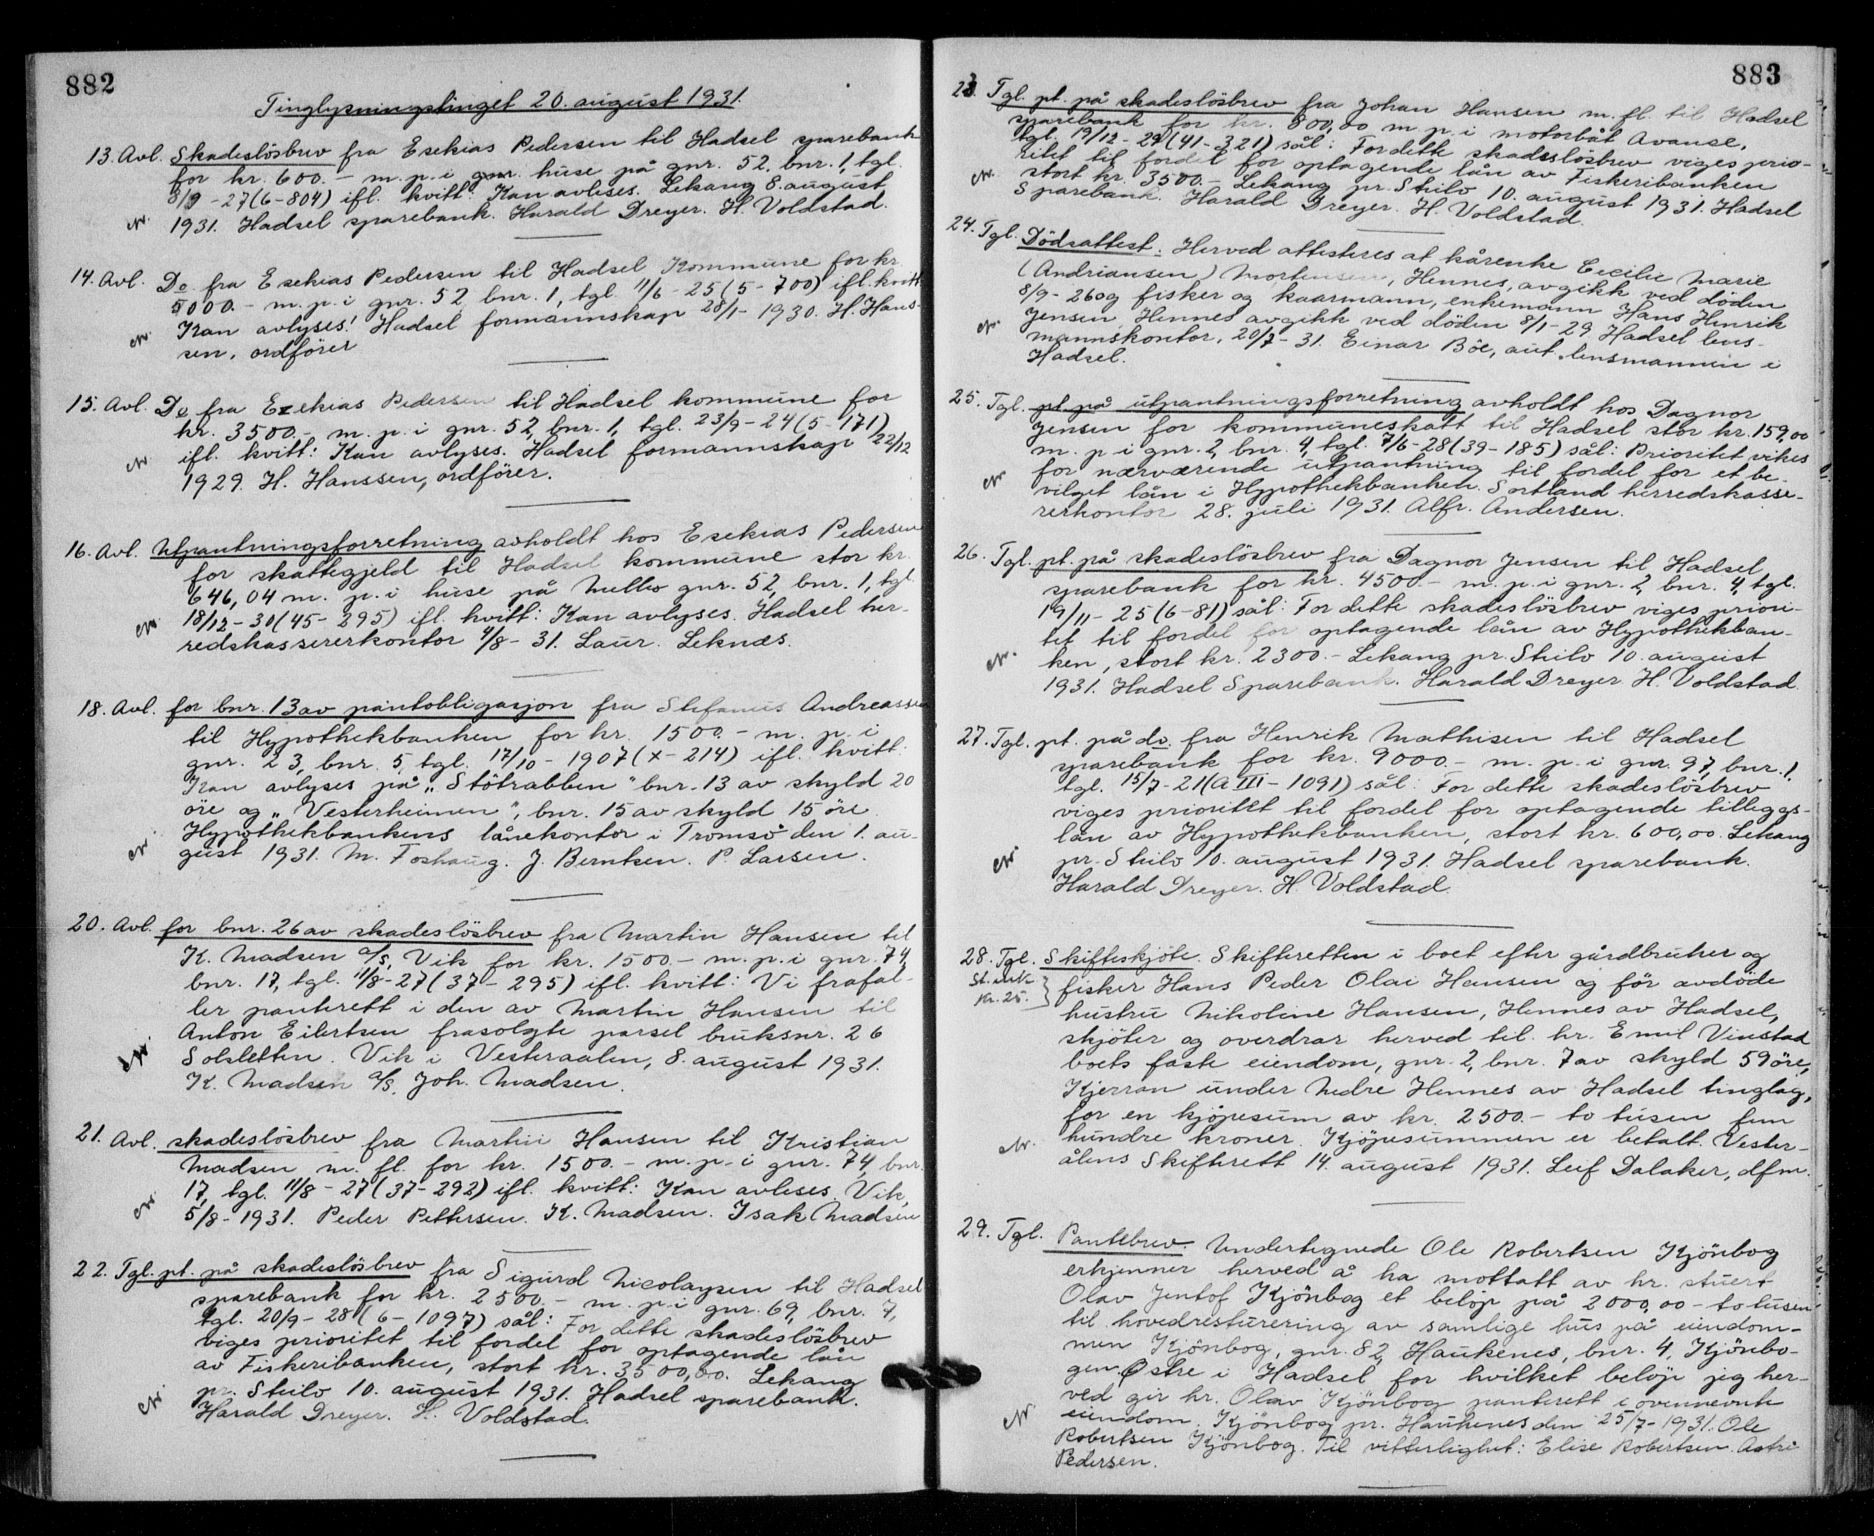 882
Tinglysningstinget 20. august 1931.
13. Avl. Skadeslösbrev fra Esekias Pedersen til Hadsel sparebank
for kr. 600.- m. p. i huse på gnr. 52, bnr. 1, tgl.
8/9-27 (6-804) ifl. kvitt: Kan avleses. Lekang 8. august
1931. Hadsel sparebank. Harald Dreyer. H. Voldstad.
14. Avl. Do fra Esekias Pedersen til Hadsel Kommune for kr.
5000.- m. p. i gnr. 52 bnr. 1, tgl. 11/6-25 (5-700) ifl. kvitt
Kan avlyses! Hadsel formannskap 28/1-1930. H. Hans-
sen, ordförer
15. Avl. Do fra Ezekias Pedersen til Hadsel kommune for
kr. 3500.- m. p. i gnr. 52, bnr. 1, tgl. 23/9-24 (5-171)
ifl. kvitt: Kan avlyses. Hadsel formannskap 22/12
1929. H. Hanssen, ordförer.
16. Avl. Utpantningsforretning avholdt hos Esekias Pedersen
for skattegjeld til Hadsel kommune stor kr.
646,04 m. p. i huse på Melbo gnr. 52, bnr. 1, tgl.
18/12-30 (45-295) ifl. kvitt: Kan avlyses. Hadsel her-
redskassererkontor 4/8-31. Laur. Leknæs.
18. Avl. for bnr. 13 av pantobligasjon fra Stefanus Andreassen
til Hypothekbanken for kr. 1500.- m. p. i
gnr. 23, bnr. 5, tgl. 17/10-1907 (X-214) ifl. kvitt:
Kan avlyses på „Stötrabben" bnr. 13 av skyld 20
öre og „Vesterheimen", bnr. 15 av skyld 15 öre
Hypothekbankens lånekontor i Tromsö den 1. au-
gust 1931. M. Foshaug. J. Berntsen. P Larsen.
20. Avl. for bnr. 26 av skadeslösbrev fra Martin Hansen til
K. Madsen a/s, Vik for kr. 1500.- m. p. i gnr. 74,
bnr. 17, tgl. 11/8-27 (37-295) ifl. kvitt: Vi frafal-
ler panterett i den av Martin Hansen til
Anton Eilertsen frasolgte parsel bruksnr. 26
Solsletten. Vik i Vesteraalen, 8. august 1931.
K. Madsen a/s. Joh. Madsen.
21. Avl. skadeslösbrev fra Martin Hansen til Kristian
Madsen m. fl. for kr. 1500.- m. p. i gnr. 74, bnr.
17, tgl. 11/8-27 (37-292) ifl. kvitt: Kan avleses. Vik,
5/8-1931. Peder Pettersen. K. Madsen. Isak Madsen
22. Tgl. pt. på skadeslösbrev fra Sigurd Nicolaysen til Hadsel
sparebank for kr. 2500.- m. p. i gnr. 69, bnr. 7,
tgl. 20/9-28 (6-1097) sål: For dette skadeslösbrev
viges prioritet til fordel for optagende lån
av Fiskeribanken, stort kr. 3500,00. Lekang
pr. Stilo 10. august 1931. Hadsel sparebank.
Harald Dreyer. H. Voldstad.
883
23. Tgl. pt. på skadeslösbrev fra Johan Hansen m. fl. til Hadsel
sparebank for kr. 800,00 m p. i motorbåt Avanse,
tgl. 19/12-29 (41-321) sål: For dette skadeslösbrev viges prio-
ritet til fordel for optagende lån av Fiskeribanken
stort kr. 3500.- Lekang pr. Stilo 10. august 1931. Hadsel
Sparebank. Harald Dreyer. H. Voldstad.
24. Tgl. Dödsattest: Herved attesteres at kårenke Cecilie Marie
(Andriansen) Mortensen, Hennes, avgikk ved döden
8/9-26 og fisker og kaarmann, enkemann Hans Henrik
Jensen Hennes avgikk ved döden 8/1-29 Hadsel lens-
mannskontor, 20/7-31. Einar Böe, aut. lensmannen i
Hadsel.
25. Tgl. pt. på utpantningsforretning avholdt hos Dagnor
Jensen for kommuneskatt til Hadsel stor kr. 159,00
m. p i gnr. 2, bnr. 4, tgl. 7/6-28 (39-185) sål: Prioritet vikes
for nærværende utpantning til fordel for et be-
vilget lån i Hypothekbanken. Sortland herredskasse-
rerkontor 28. juli 1931. Alfr. Andersen.
26. Tgl. pt. på skadeslösbrev fra Dagnor Jensen til Hadsel
sparebank for kr. 4500.- m. p. i gnr. 2, bnr. 4, tgl.
19/11-25 (6-81) sål: For dette skadeslösbrev viges priori-
tet til fordel for optagende lån av Hypothekban-
ken, stort kr. 2300.- Lekang pr. Stilo 10. august
1931. Hadsel Sparebank. Harald Dreyer H. Voldstad
27. Tgl. pt. på do. fra Henrik Mathisen til Hadsel
sparebank for kr. 9000.- m. p. i gnr. 97, bnr. 1,
tgl. 15/7-21 (A III-1091) sål: For dette skadeslösbrev
viges prioritet til fordel for optagende tilleggs-
lån av Hypothekbanken, stort kr. 600,00. Lekang
pr. Stilo 10. august 1931. Hadsel sparebank.
Harald Dreyer. H Voldstad.
28. Tgl. Skifteskjöte. Skifteretten i boet efter gårdbruker og
St. merk. kr. 25. fisker Hans Peder Olai Hansen og för avdöde
hustru Nikoline Hansen, Hennes av Hadsel,
skjöter og overdrar herved til hr. Emil Vinstad
boets faste eiendom, gnr. 2, bnr. 7 av skyld 59 öre,
Kjerran under Nedre Hennes av Hadsel tinglag,
for en kjöpesum av kr. 2500.- to tusen fem
hundre kroner. Kjöpesummen er betalt. Vester-
ålens Skifterett 14. august 1931. Leif Dalaker, dfm.
29. Tgl. Pantebrev. Undertegnede Ole Robertsen Kjönbog
erkjenner herved å ha mottatt av hr. stuert
Olav Jentof Kjönbog et belöp på 2000,00 - to tusen
til hovedresturering av samlige hus på eiendom-
men Kjönbog, gnr. 82, Haukenes, bnr. 4, Kjönbo-
gen Östre i Hadsel for hvilket belöp jeg her-
ved gir hr. Olav Kjönbog panterett i ovennevnte
eiendom. Kjönbog pr. Haukenes den 25/7-1931. Ole
Robertsen Kjönbog. Til vitterlighet: Elise Robertsen. Astri
Pedersen.